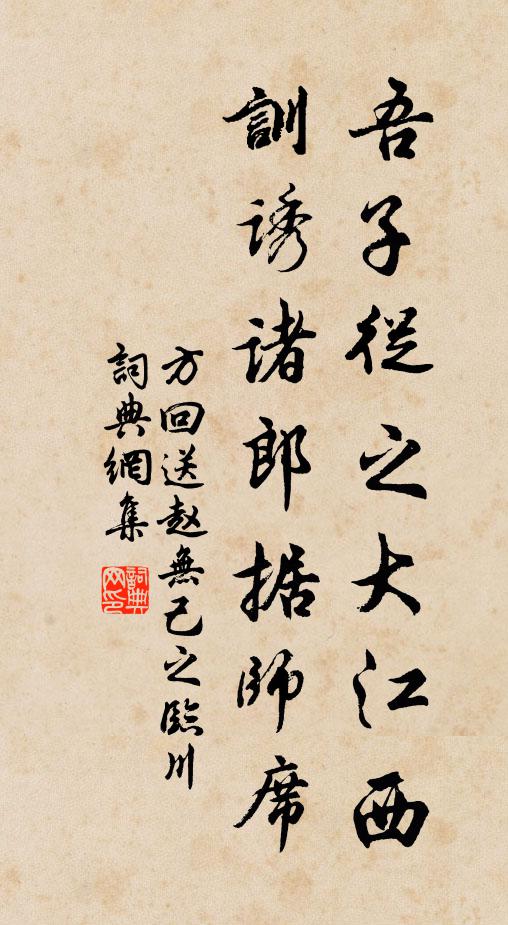 吾子從之大江西
訓誘諸郎据師席
方回送赵無己之臨川
詞典網集
詞典网印